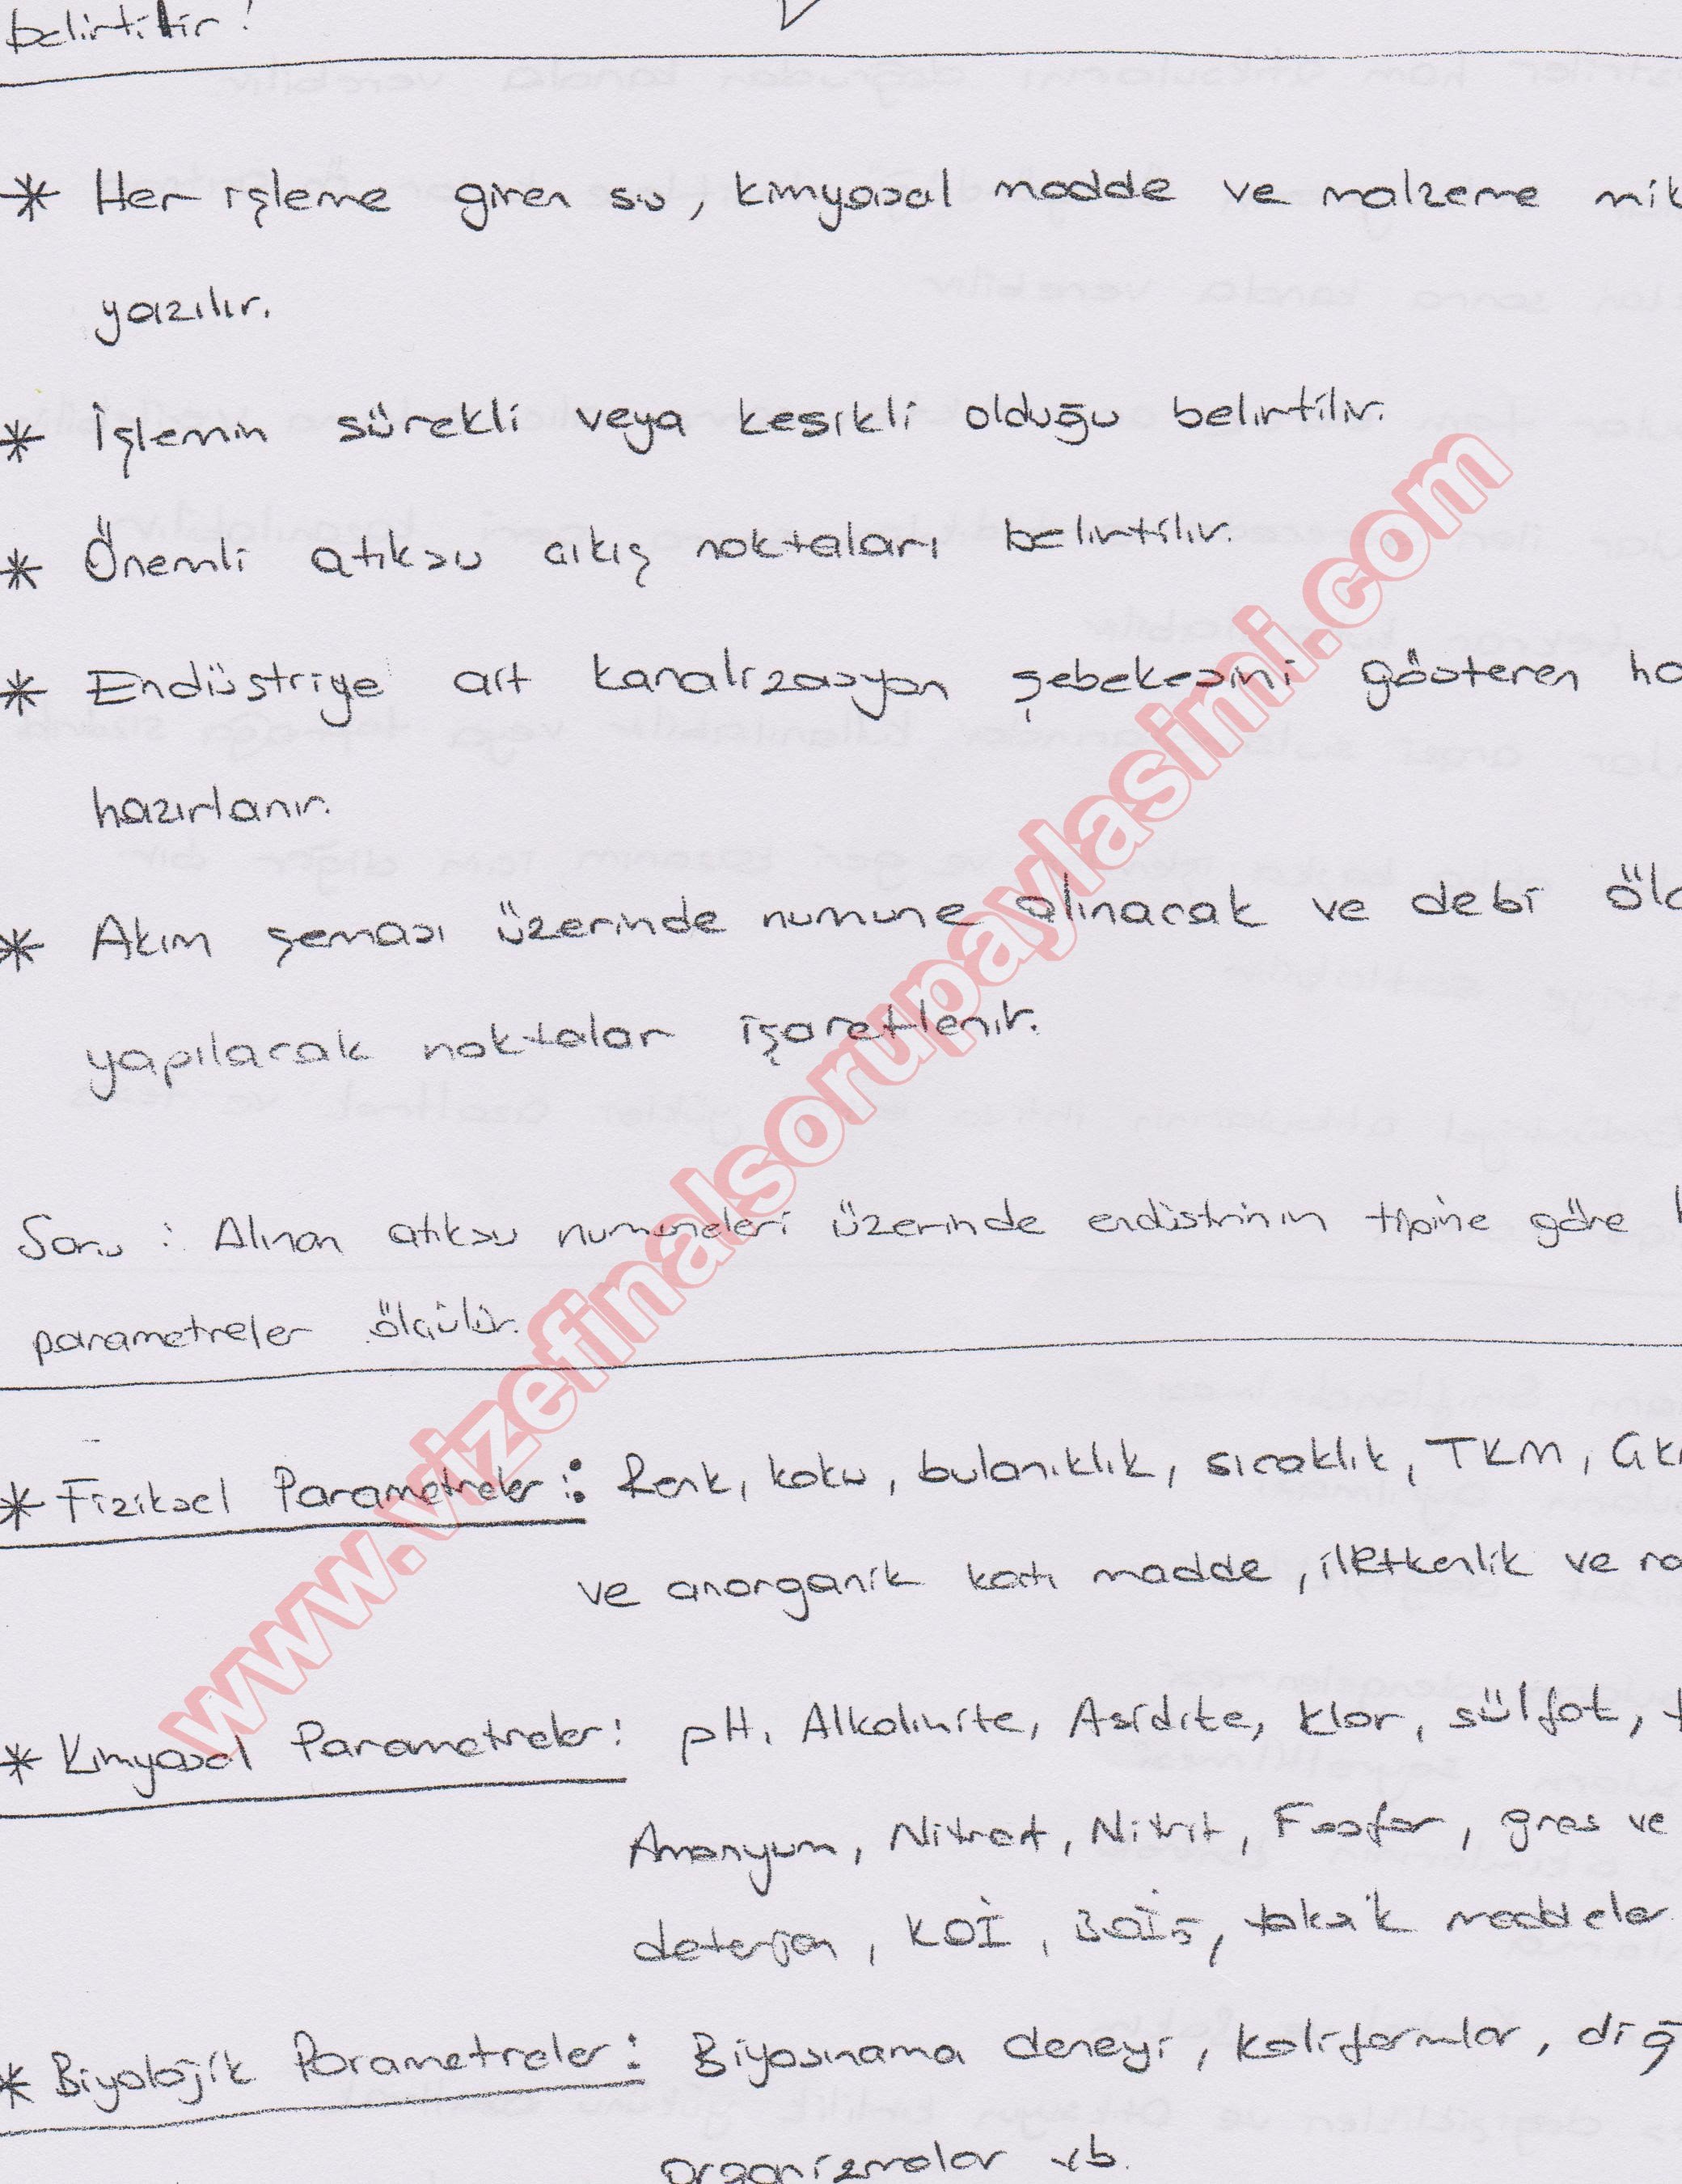 belirtilir!
* Her işleme giren su, kimyasal madde ve malzeme mik
yazılır.
* İşlemin sürekli veya kesikli olduğu belirtilir.
* Önemli atıksu çıkış noktaları belirtilir.
* Endüstriye ait kanalizasyon şebekesini gösteren ha
hazırlanır.
* Akım şeması üzerinde numune alınacak ve debi ölç
yapılacak noktalar işaretlenir.
Soru : Alınan atıksu numuneleri üzerinde endüstrinin tipine göre h
parametreler ölçülür.
* Fiziksel Parametreler : Renk, koku, bulanıklık, sıcaklık, TKM,
ve anorganik katı madde, iletkenlik ve ra
* Kimyasal Parametreler : pH, Alkalinite, Asidite, klor, sülfat,
Amonyum, Nitrat, Nitrit, Fosfor, gres ve
deterjan, KOİ, BOİ5, toksik maddeler
* Biyolojik Parametreler : Biyosınama deneyi, koliformlar, diğ
organizmalar vb.
www.vizefinalsorupaylasimi.com